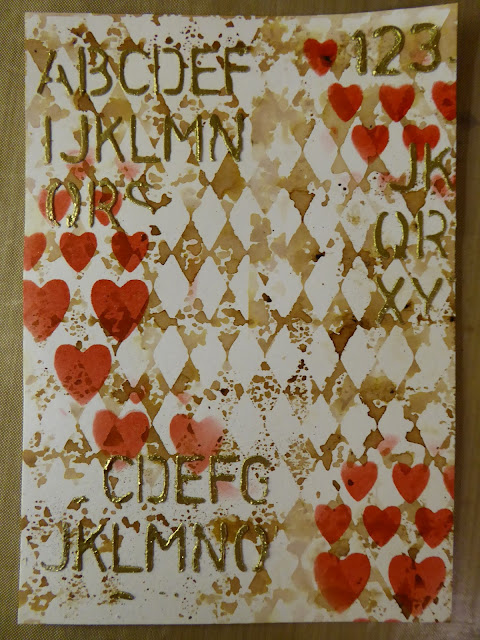 ABCDEF
IJKLMN
QR
123
JK
QR
XY
CDEFG
JKLMNO